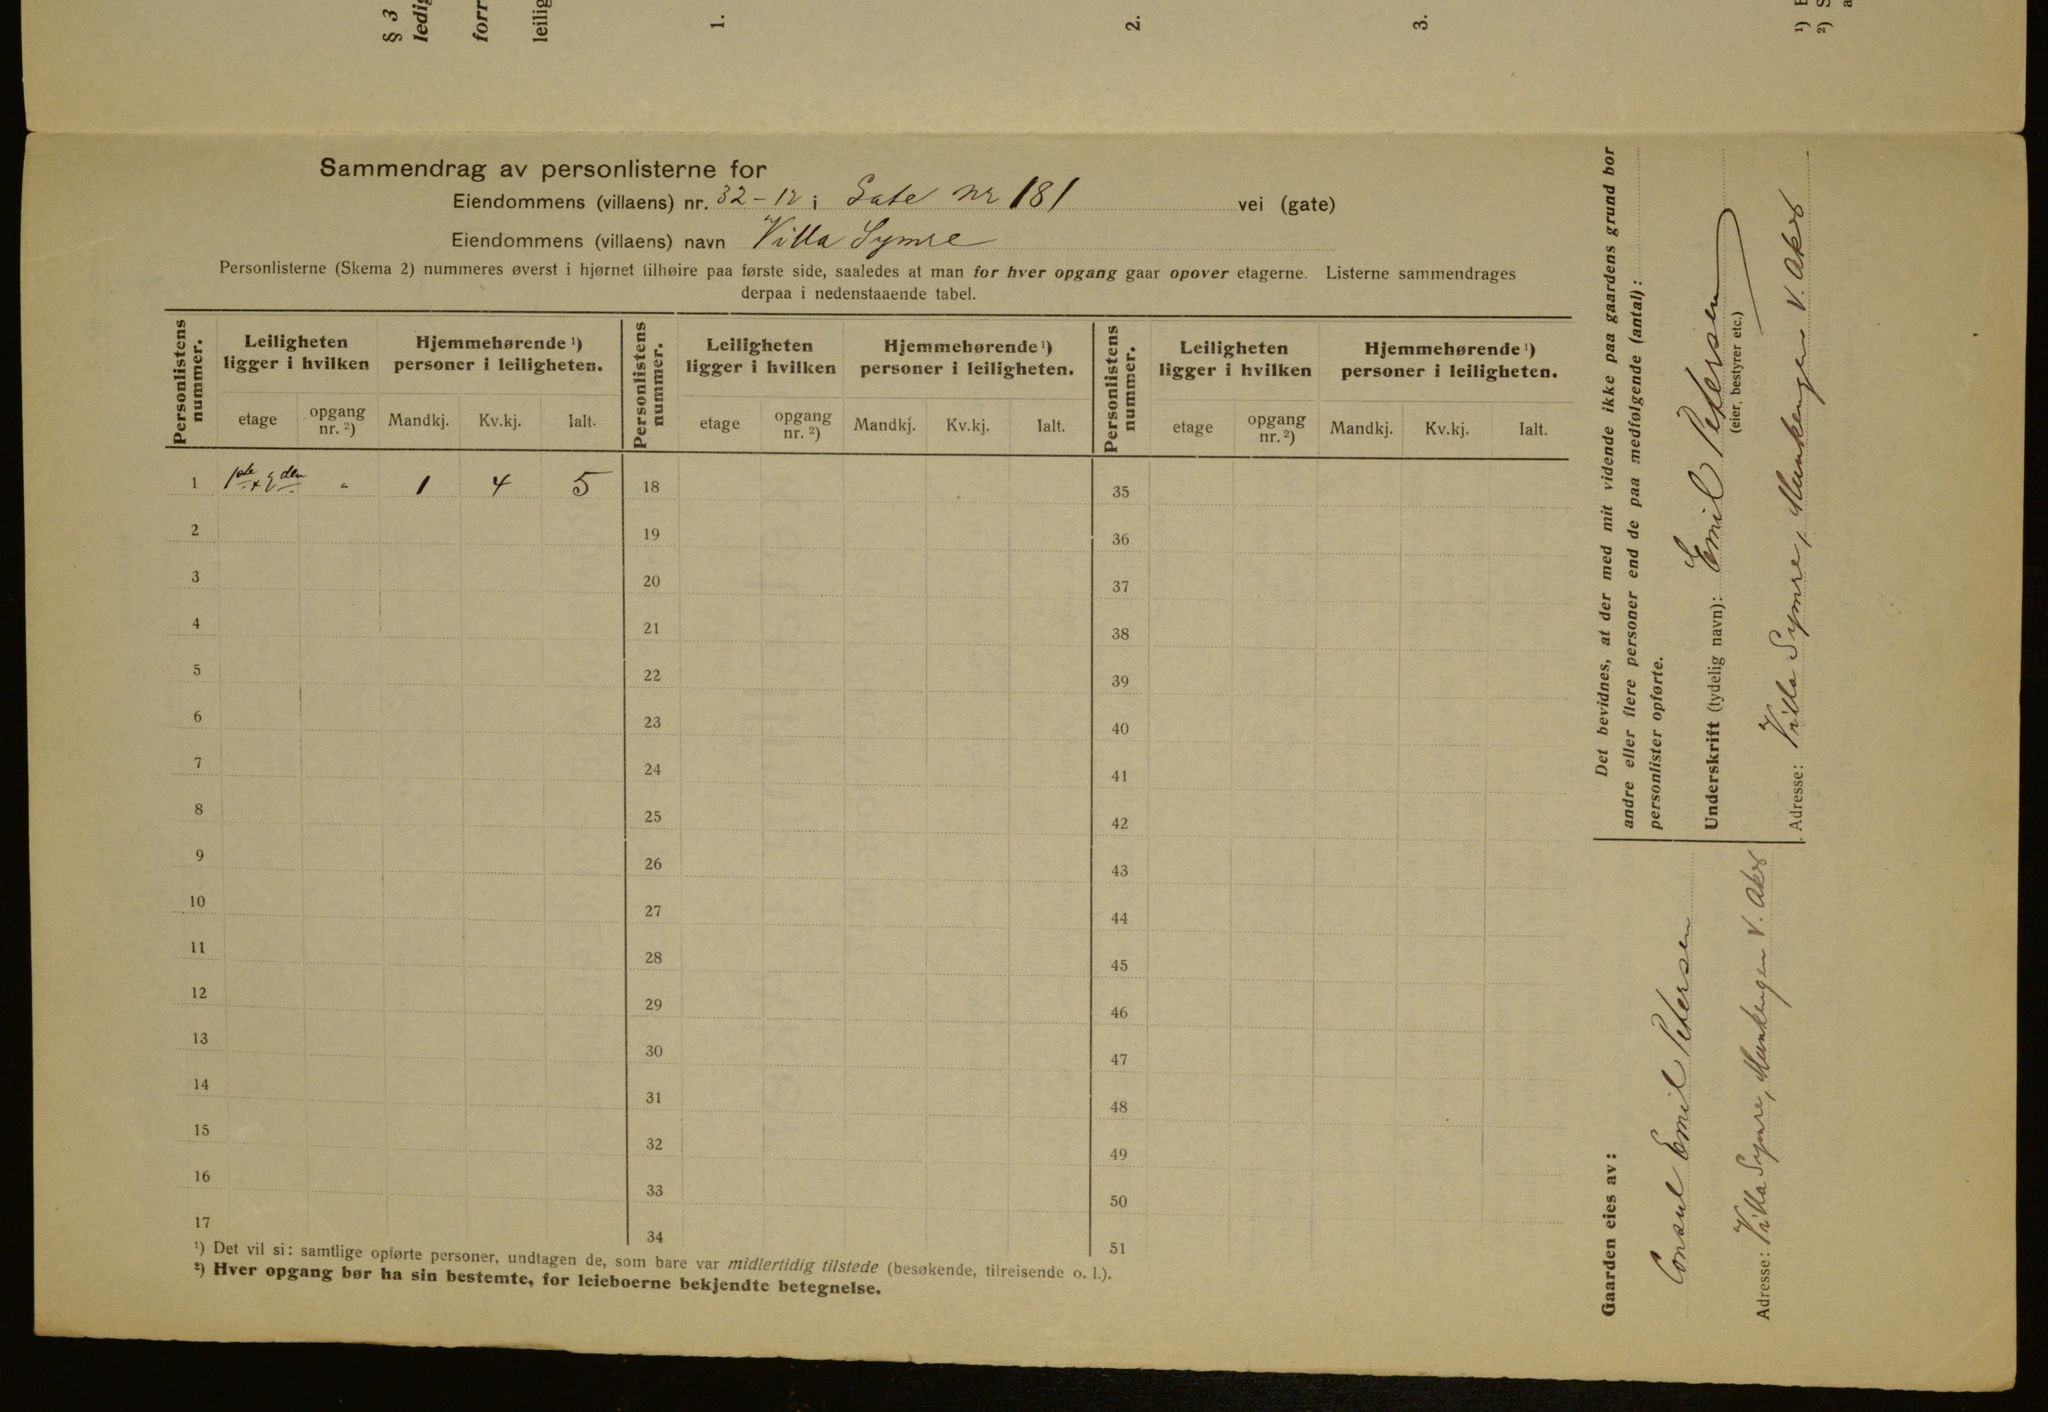 § 3
ledig
forr
leilig
1.
2.
3.
¹) E
²) S
a
Sammendrag av personlisterne for
Eiendommens (villaens) nr. 32-12 i Gate nr 181 vei (gate)
Eiendommens (villaens) navn Villa Symre
Personlisterne (Skema 2) nummeres øverst i hjørnet tilhøire paa første side, saaledes at man for hver opgang gaar opover etagerne. Listerne sammendrages
derpaa i nedenstaaende tabel.
Personlistens nummer. Leiligheten ligger i hvilken Hjemmehørende ¹) personer i leiligheten. Personlistens nummer. Leiligheten ligger i hvilken Hjemmehørende ¹) personer i leiligheten. Personlistens nummer. Leiligheten ligger i hvilken Hjemmehørende ¹) personer i leiligheten.
etage opgang nr. ²) Mandkj. Kv.kj. Ialt. etage opgang nr. ²) Mandkj. Kv.kj. Ialt. etage opgang nr. ²) Mandkj. Kv.kj. Ialt.
1 1ste + 2den " 1 4 5 18 35
2 19 36
3 20 37
4 21 38
5 22 39
6 23 40
7 24 41
8 25 42
9 26 43
10 27 44
11 28 45
12 29 46
13 30 47
14 31 48
15 32 49
16 33 50
17 34 51
¹) Det vil si: samtlige opførte personer, undtagen de, som bare var midlertidig tilstede (besøkende, tilreisende o. l.).
²) Hver opgang bør ha sin bestemte, for leieboerne bekjendte betegnelse.
Det bevidnes, at der med mit vidende ikke paa gaardens grund bor
andre eller flere personer end de paa medfølgende (antal):
personlister opførte.
Underskrift (tydelig navn): Emil Petersen
(eier, bestyrer etc.)
Adresse: Villa Symre, Munkengen V. Aker
Gaarden eies av:
Consul Emil Petersen
Adresse: Villa Symre, Munkengen V. Aker